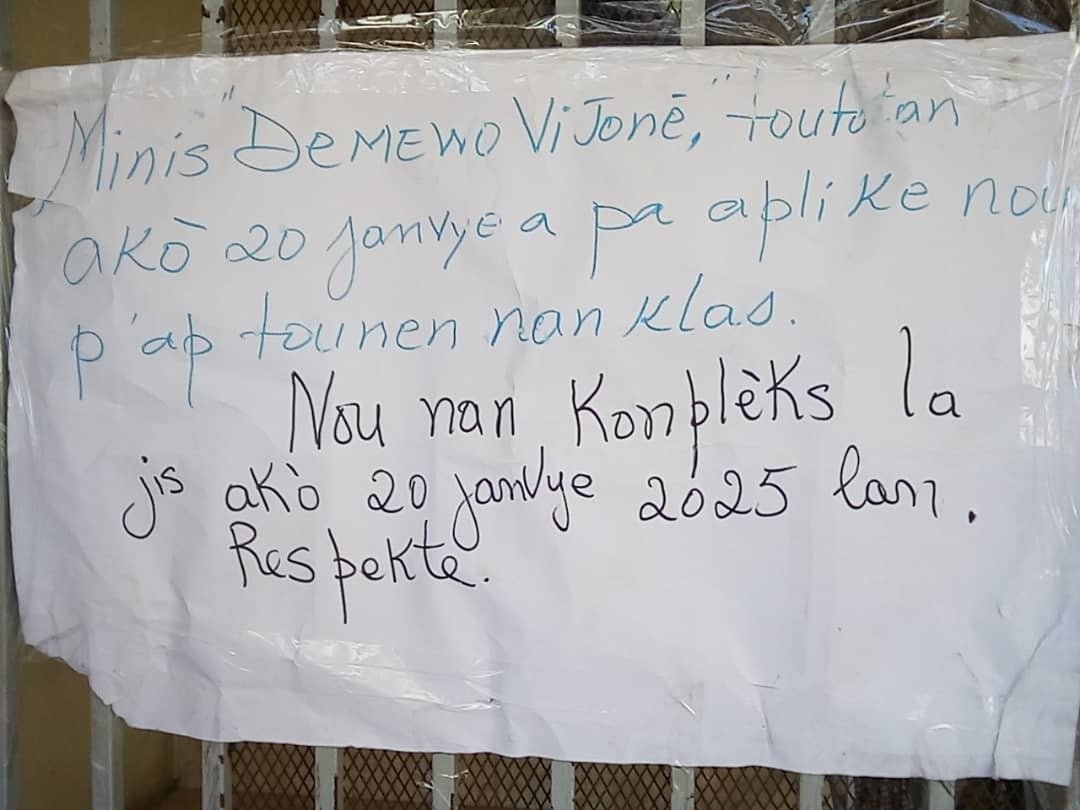 Minis "DeMEWO ViJonē," toutotan
akò 20 janvye a pa aplike nou
p'ap tounen nan klas.
Nou nan Konplèks la
jis akò 20 janvye 2025 lan.
Respekte.